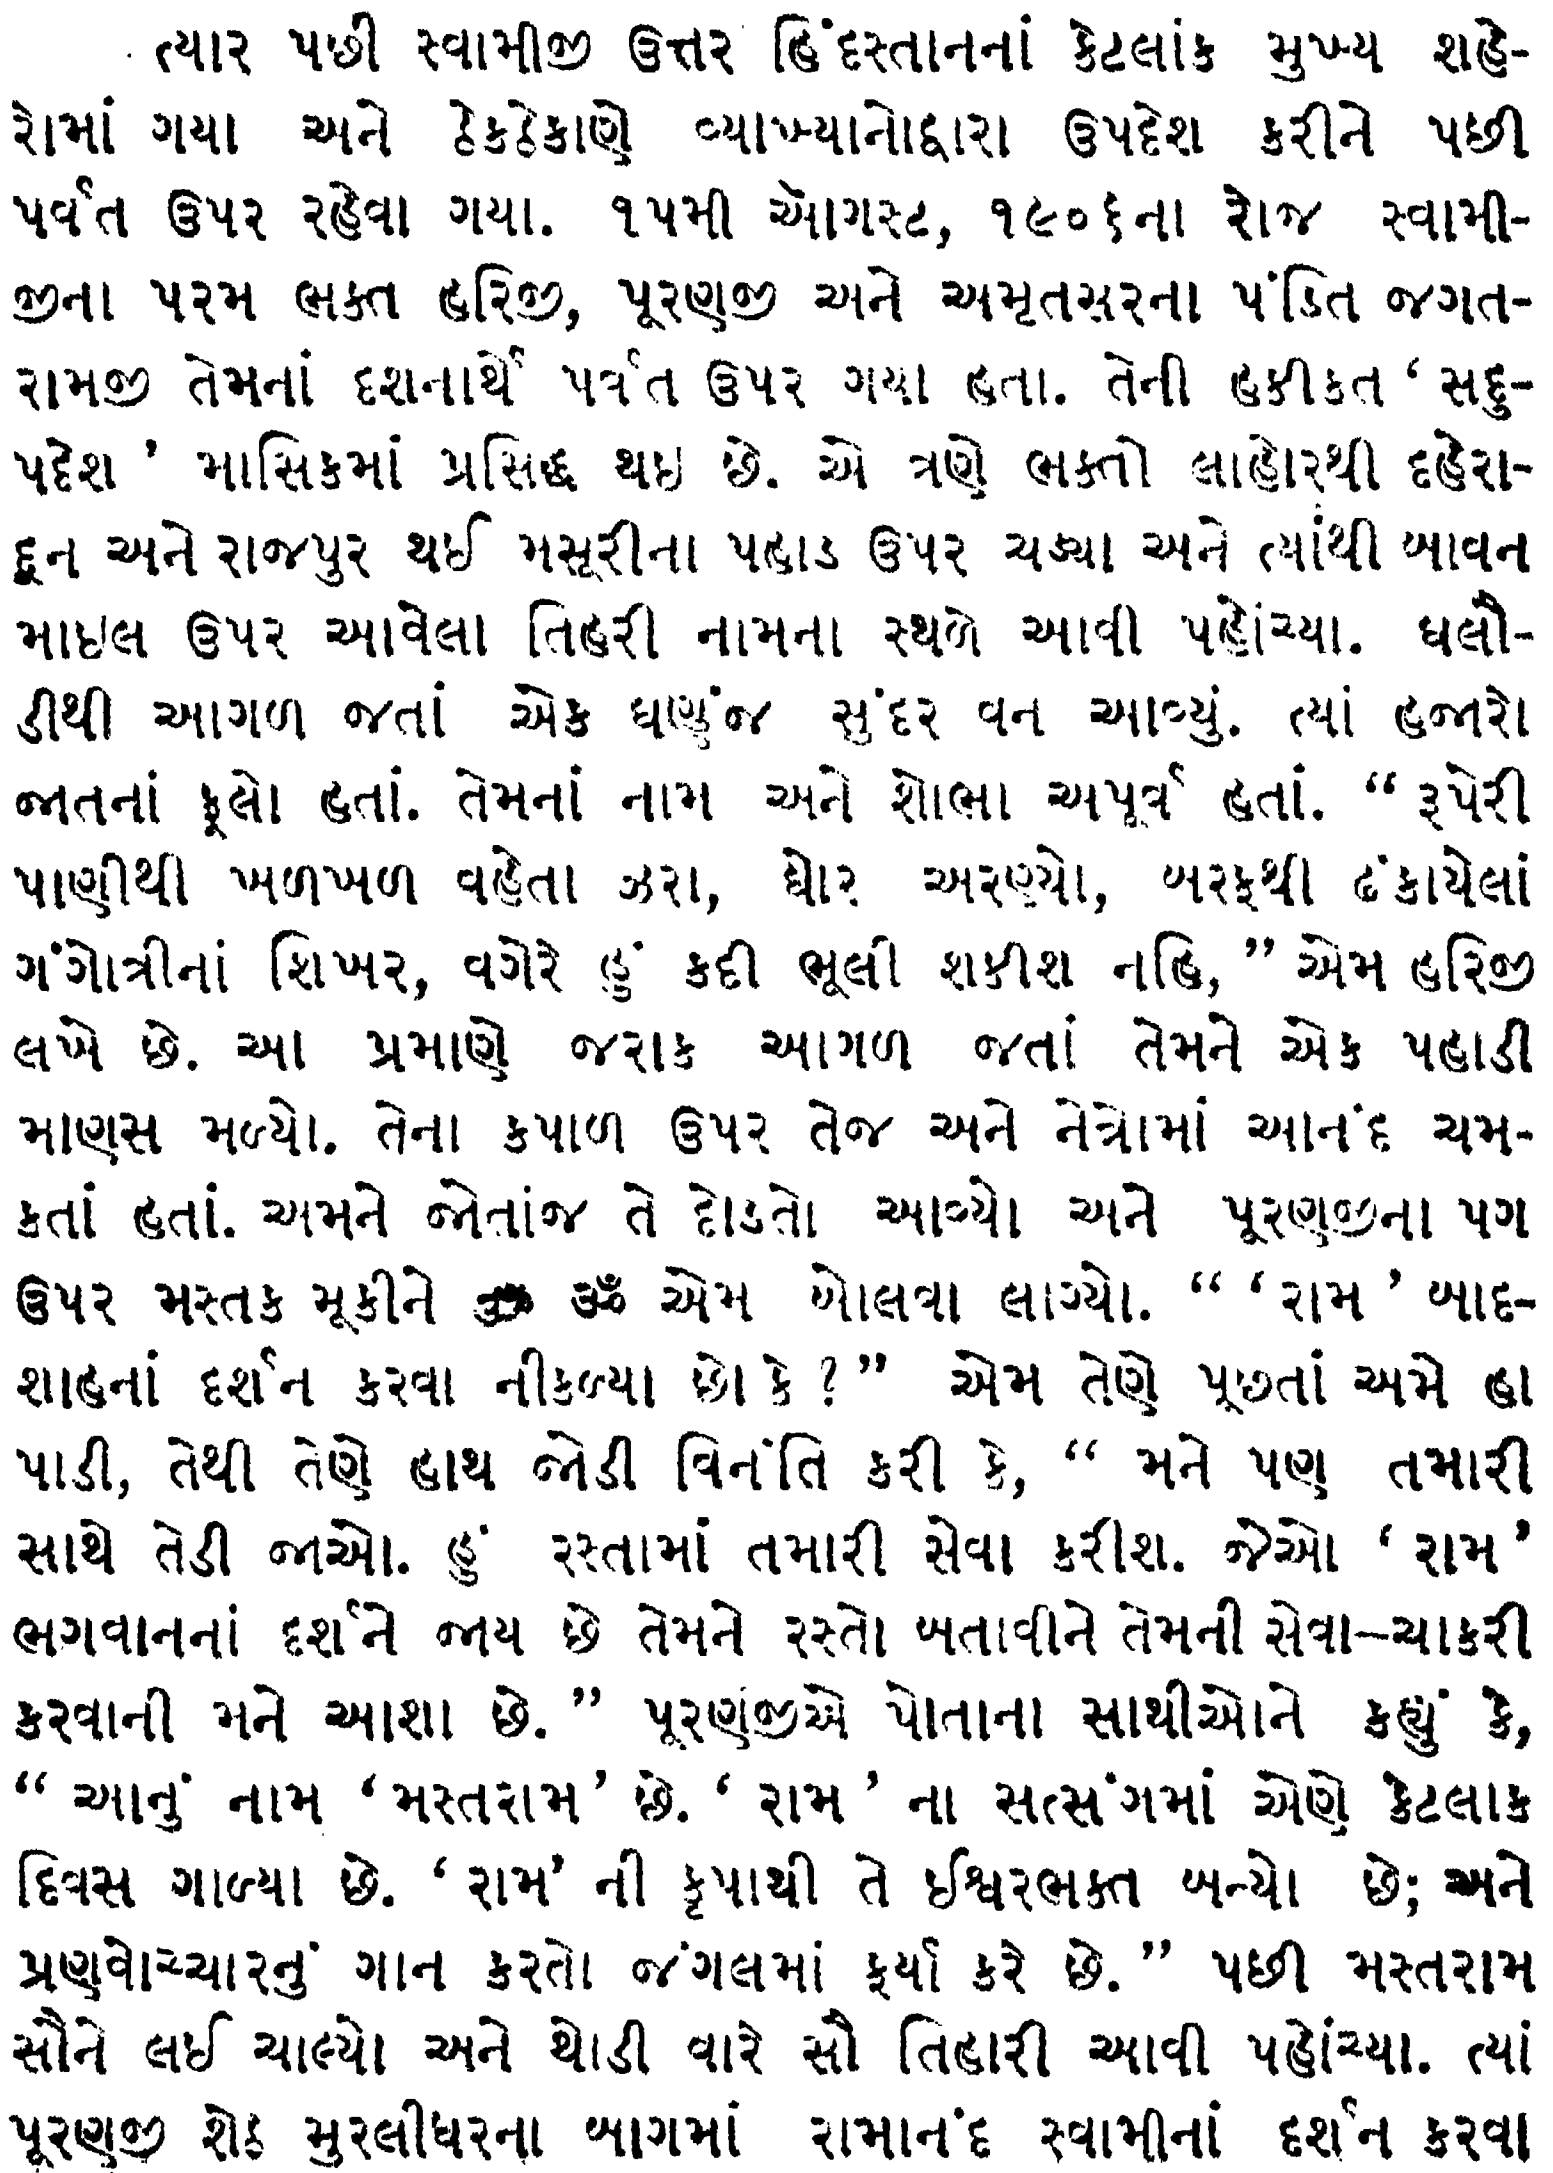 ત્યાર પછી સ્વામીજી ઉત્તર હિંદસ્તાનનાં કેટલાંક મુખ્ય શહે-
રોમાં ગયા અને ઠેકઠેકાણે વ્યાખ્યાનોદ્વારા ઉપદેશ કરીને પછી
પર્વત ઉપર રહેવા ગયા. ૧૫મી ઑગસ્ટ, ૧૯૦૬ના રોજ સ્વામી-
જીના પરમ ભક્ત હરિજી, પૂરણજી અને અમૃતસરના પંડિત જગત-
રામજી તેમનાં દશનાર્થે પર્વત ઉપર ગયા હતા. તેની હકીકત ‘ સદુ-
પદેશ ’ માસિકમાં પ્રસિદ્ધ થઇ છે. એ ત્રણે ભક્તો લાહોરથી દહેરા-
દૂન અને રાજપુર થઈ મસૂરીના પહાડ ઉપર ચડ્યા અને ત્યાંથી બાવન
માઇલ ઉપર આવેલા તિહરી નામના સ્થળે આવી પહોંચ્યા. ધલૌ-
ડીથી આગળ જતાં એક ઘણુંજ સુંદર વન આવ્યું. ત્યાં હજારો
જાતનાં ફૂલો હતાં. તેમનાં નામ અને શોભા અપૂર્વ હતાં. “ રૂપેરી
પાણીથી ખળખળ વહેતા ઝરા, ઘોર અરણ્યો, બરફથી ઢંકાયેલાં
ગંગોત્રીનાં શિખર, વગેરે હું કદી ભૂલી શકીશ નહિ, ” એમ હરિજી
લખે છે. આ પ્રમાણે જરાક આગળ જતાં તેમને એક પહાડી
માણસ મળ્યો. તેના કપાળ ઉપર તેજ અને નેત્રોમાં આનંદ ચમ-
કતાં હતાં. અમને જોતાંજ તે દોડતો આવ્યો અને પૂરણજીના પગ
ઉપર મસ્તક મૂકીને ૐ ૐ એમ બોલવા લાગ્યો. “ ‘ રામ ’ બાદ-
શાહનાં દર્શન કરવા નીકળ્યા છો કે ? ” એમ તેણે પૂછતાં અમે હા
પાડી, તેથી તેણે હાથ જોડી વિનંતિ કરી કે, “ મને પણ તમારી
સાથે તેડી જાઓ. હું રસ્તામાં તમારી સેવા કરીશ. જેઓ ‘ રામ ’
ભગવાનનાં દર્શને જાય છે તેમને રસ્તો બતાવીને તેમની સેવા–ચાકરી
કરવાની મને આશા છે. ” પૂરણજીએ પોતાના સાથીઓને કહ્યું કે,
“ આનું નામ ‘ મસ્તરામ ’ છે. ‘ રામ ’ ના સત્સંગમાં એણે કેટલાક
દિવસ ગાળ્યા છે. ‘ રામ’ ની કૃપાથી તે ઈશ્વરભક્ત બન્યો છે; અને
પ્રણવોચ્ચારનું ગાન કરતો જંગલમાં ફર્યા કરે છે. ” પછી મસ્તરામ
સૌને લઈ ચાલ્યો અને થોડી વારે સૌ તિહારી આવી પહોંચ્યા. ત્યાં
પૂરણજી શેઠ મુરલીધરના બાગમાં રામાનંદ સ્વામીનાં દર્શન કરવા